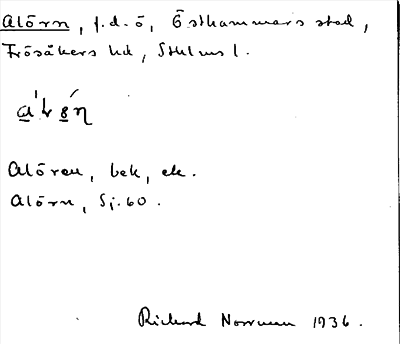 Alörn, f.d. ö, Östhammars stad,
Frösåkers hd, Sthlms l.
Alören, bek, ek.
Alörn, Sj. 60.
Richard Norrman 1936.